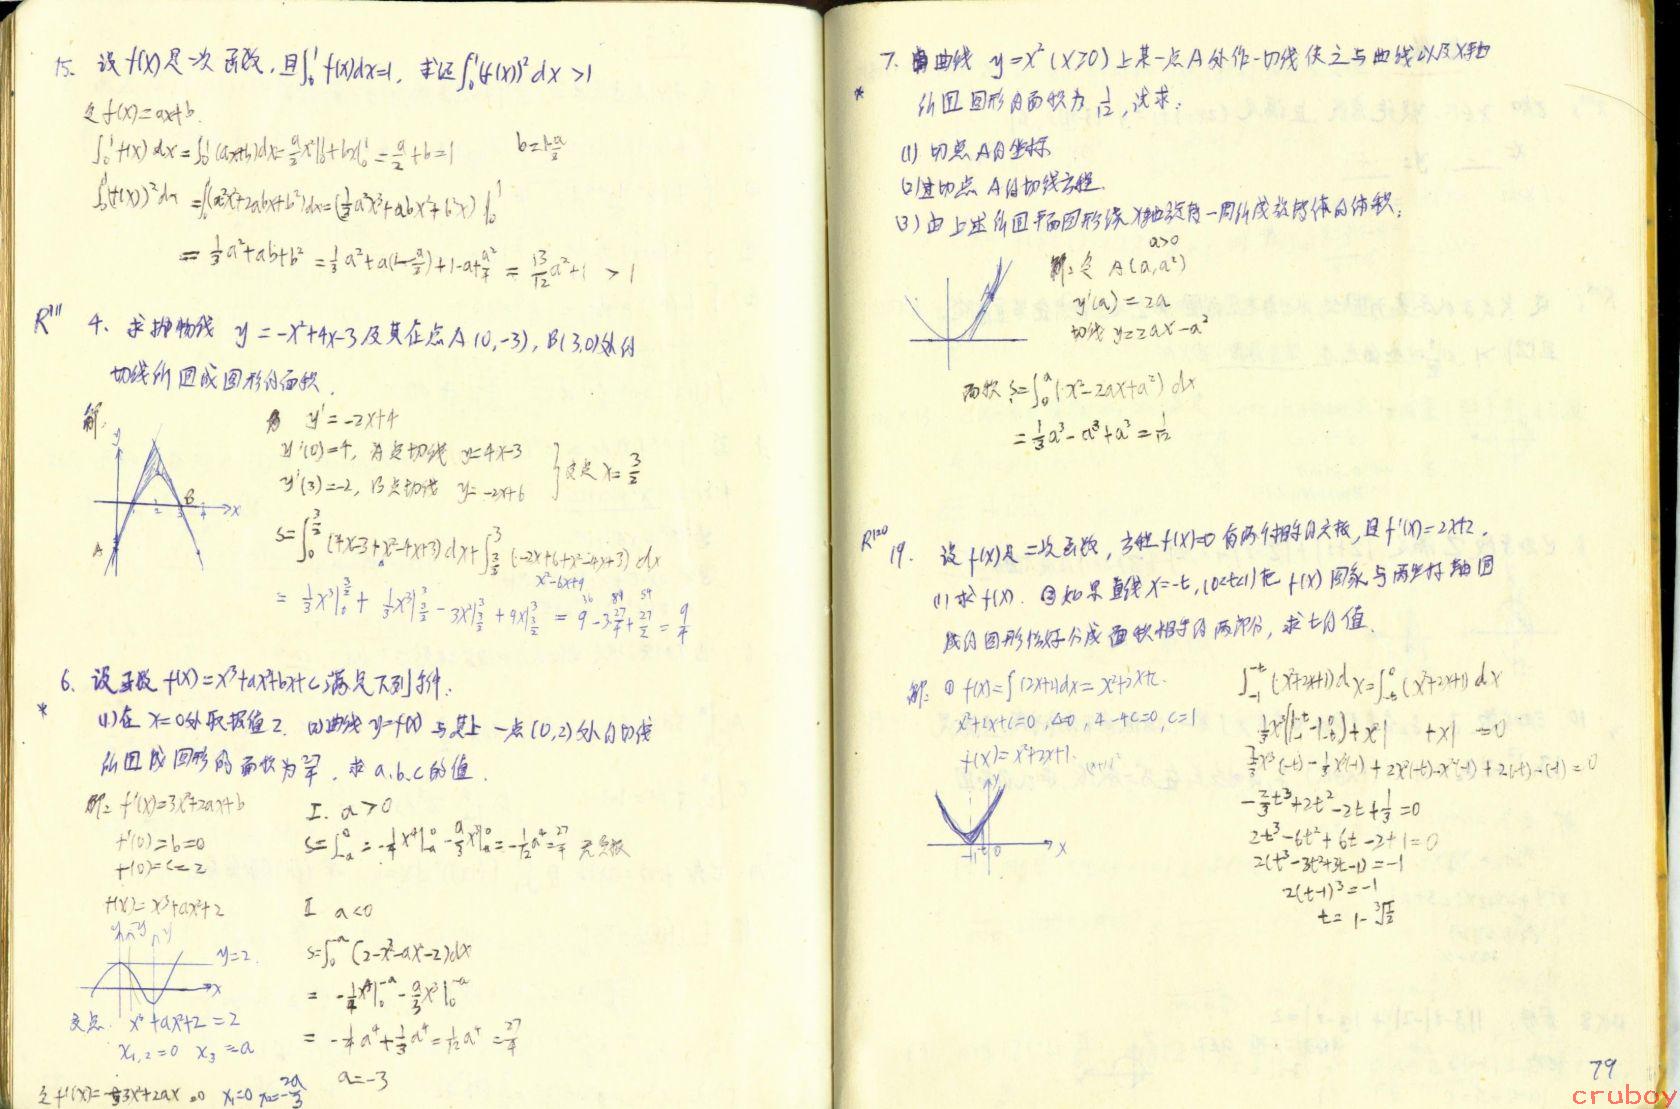 15. 设f(x)是一次函数,且∫₀¹f(x)dx=1, 求证∫₀¹(f(x))²dx>1
令f(x)=ax+b.
∫₀¹f(x)dx=∫₀¹(ax+b)dx=a/2x²|₀¹+bx|₀¹=a/2+b=1 b=1-a/2
∫₀¹(f(x))²dx=∫₀¹(a²x²+2abx+b²)dx=(1/3a²x³+abx²+b²x)|₀¹
=1/3a²+ab+b²=1/3a²+a(1-a/2)+1-a+a²/4=13/12a²+1>1
R'11 4. 求抛物线 y=-x²+4x-3及其在点A(0,-3),B(3,0)处的
切线所围成图形的面积.
解:
y'=-2x+4
y'(0)=4, A点切线 y=4x-3
y'(3)=-2, B点切线 y=-2x+6 }交点x=3/2
y
B
1 2 3 4 x
A
S=∫₀^(3/2)(4x-3+x²-4x+3)dx+∫_(3/2)³(-2x+6+x²-4x+3)dx
x²-6x+9
=1/3x³|₀^(3/2)+1/3x³|_(3/2)³-3x²|_(3/2)³+9x|_(3/2)³=9-3·27/4+27/2=9/4
6. 设函数f(x)=x³+ax²+bx+c,满足下列条件:
* (1)在x=0处取极值2. (2)曲线y=f(x)与其上一点(0,2)处的切线
所围成图形的面积为27/4, 求a.b.c的值.
解: f'(x)=3x²+2ax+b
f'(0)=b=0
f(0)=c=2
f(x)=x³+ax²+2
y y y
y=2.
x
交点. x³+ax²+2=2
x₁,₂=0 x₃=a
令f'(x)=3x²+2ax=0 x₁=0 x₂=-2a/3
I. a>0
S=∫₋ₐ⁰=-1/4x⁴|₋ₐ⁰-a/3x³|₋ₐ⁰=-1/12a⁴=27/4 无实根
I a<0
S=∫₀^(-a)(2-x³-ax²-2)dx
=-1/4x⁴|₀^(-a)-a/3x³|₀^(-a)
=-1/4a⁴+1/3a⁴=1/12a⁴=27/4
a=-3
7. 曲线y=x²(x≥0)上某一点A处作一切线使之与曲线以及x轴
* 所围图形的面积为1/12,试求:
(1)切点A的坐标
(2)过切点A的切线方程.
(3)由上述所围平面图形绕x轴旋转一周所成旋转体的体积;
a>0
解: 令A(a,a²)
y'(a)=2a
切线y=2ax-a²
面积S=∫₀ᵃ(x²-2ax+a²)dx
=1/3a³-a³+a³=1/12
R'120 19. 设f(x)是二次函数,方程f(x)=0有两个相等的实根,且f'(x)=2x+2.
(1)求f(x). ②如果直线x=-t,(0<t<1)把f(x)图象与两坐标轴围
成的图形恰好分成面积相等的两部分,求t的值.
解: ① f(x)=∫(2x+2)dx=x²+2x+c.
x²+2x+c=0, Δ=0, 4-4c=0, c=1
f(x)=x²+2x+1.
(x+1)²
y
-1 -t 0 x
∫₋₁^(-t)(x²+2x+1)dx=∫₋ₜ⁰(x²+2x+1)dx
1/3x³(|₋₁^(-t)-|₋ₜ⁰)+x²| +x| =0
2/3x³(-t)-1/3x³(-1)+2x²(-t)-x²(-1)+2(-t)-(-1)=0
-2/3t³+2t²-2t+1/3=0
2t³-6t²+6t-2+1=0
2(t³-3t²+3t-1)=-1
2(t-1)³=-1
t=1-∛(1/2)
79
cruboy